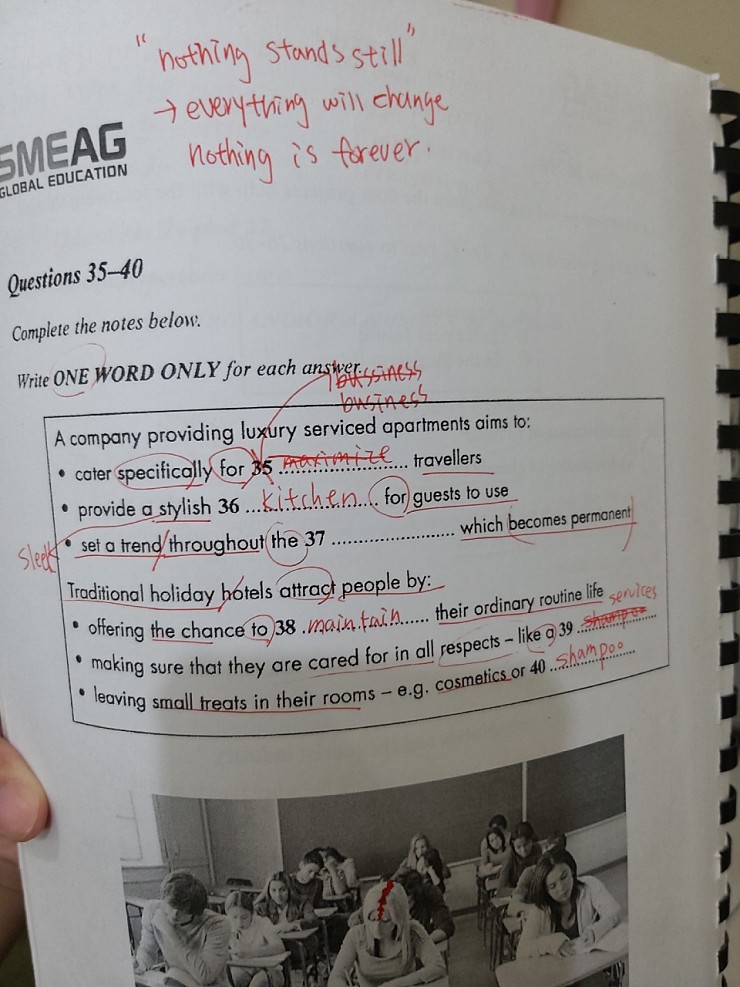 "nothing stands still"
→ everything will change
nothing is forever.
SMEAG
GLOBAL EDUCATION
Questions 35–40
Complete the notes below.
Write ONE WORD ONLY for each answer.
bussiness
business
A company providing luxury serviced apartments aims to:
• cater specifically for 35 maximize travellers
• provide a stylish 36 kitchen for guests to use
• set a trend throughout the 37 ........................ which becomes permanent
Traditional holiday hotels attract people by:
• offering the chance to 38 maintain their ordinary routine life
services
• making sure that they are cared for in all respects – like a 39 shampoo
• leaving small treats in their rooms – e.g. cosmetics or 40 shampoo